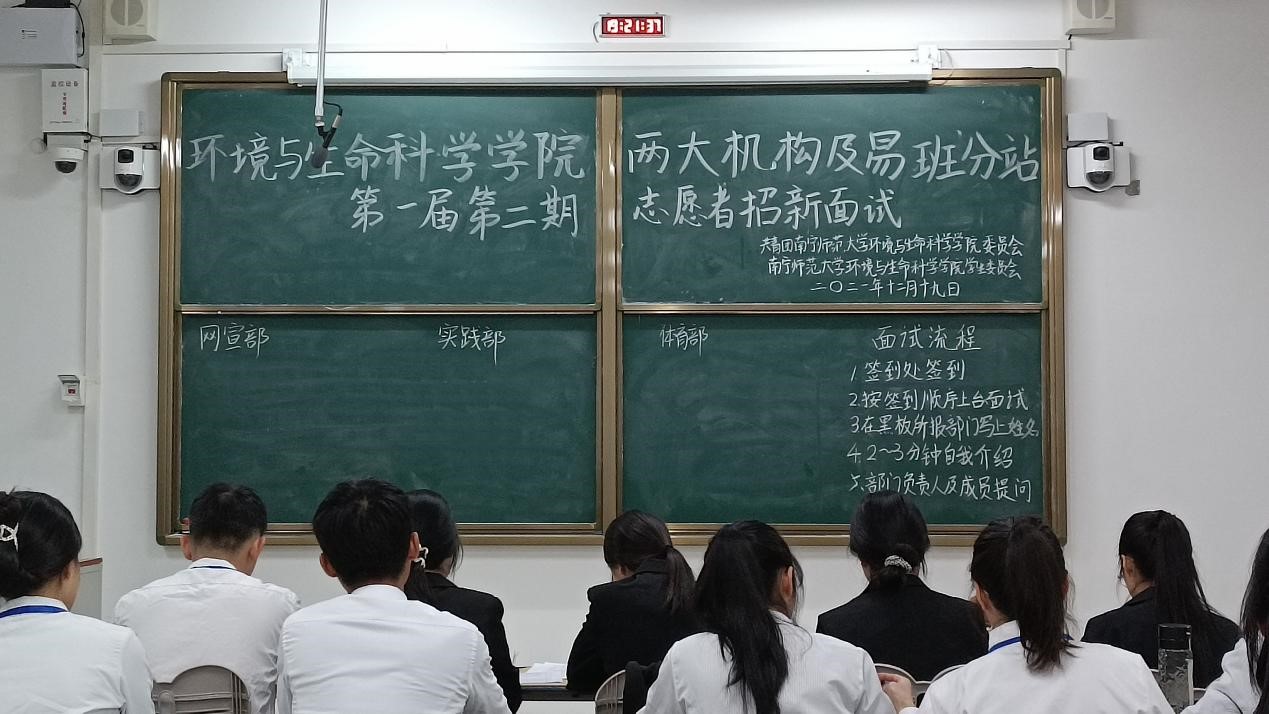 环境与生命科学学院
第一届第二期
两大机构及易班分站
志愿者招新面试
共青团南宁师范大学环境与生命科学学院委员会
南宁师范大学环境与生命科学学院学生委员会
二〇二一年十二月十九日
网宣部
实践部
体育部
面试流程
1.签到处签到
2.按签到顺序上台面试
3.在黑板所报部门写上姓名
4.2~3分钟自我介绍
5.部门负责人及成员提问